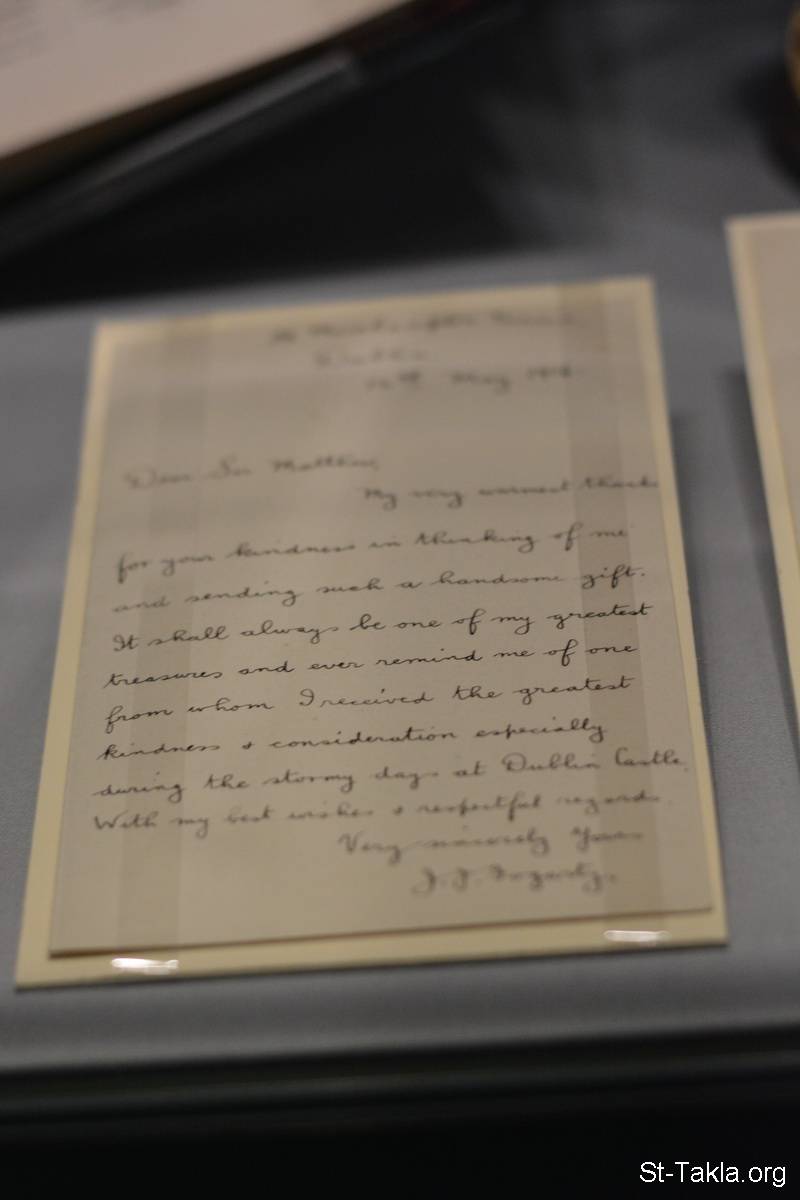 May
Dear Sir Matthew,
My very warmest thanks
for your kindness in thinking of me
and sending such a handsome gift.
It shall always be one of my greatest
treasures and ever remind me of one
from whom I received the greatest
kindness & consideration especially
during the stormy days at Dublin Castle.
With my best wishes & respectful regards.
Very sincerely Yours
J. J. Fogarty.
St-Takla.org